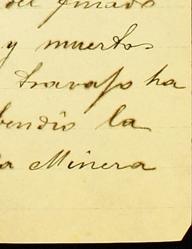 del finado
y muertos
travajo ha
endio la
a Minera